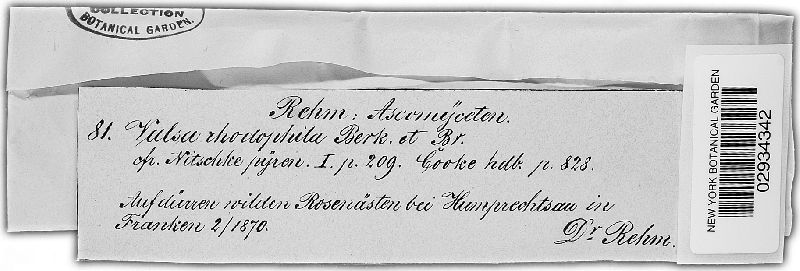 COLLECTION
BOTANICAL GARDEN.
Rehm: Ascomyceten.
81. Valsa rhodophila Berk. et Br.
cfr. Nitschke pyren. I. p. 209. Cooke hdb. p. 828.
Auf dürren wilden Rosenästen bei Humprechtsau in
Franken 2/1870.
Dr Rehm.
NEW YORK BOTANICAL GARDEN
02934342